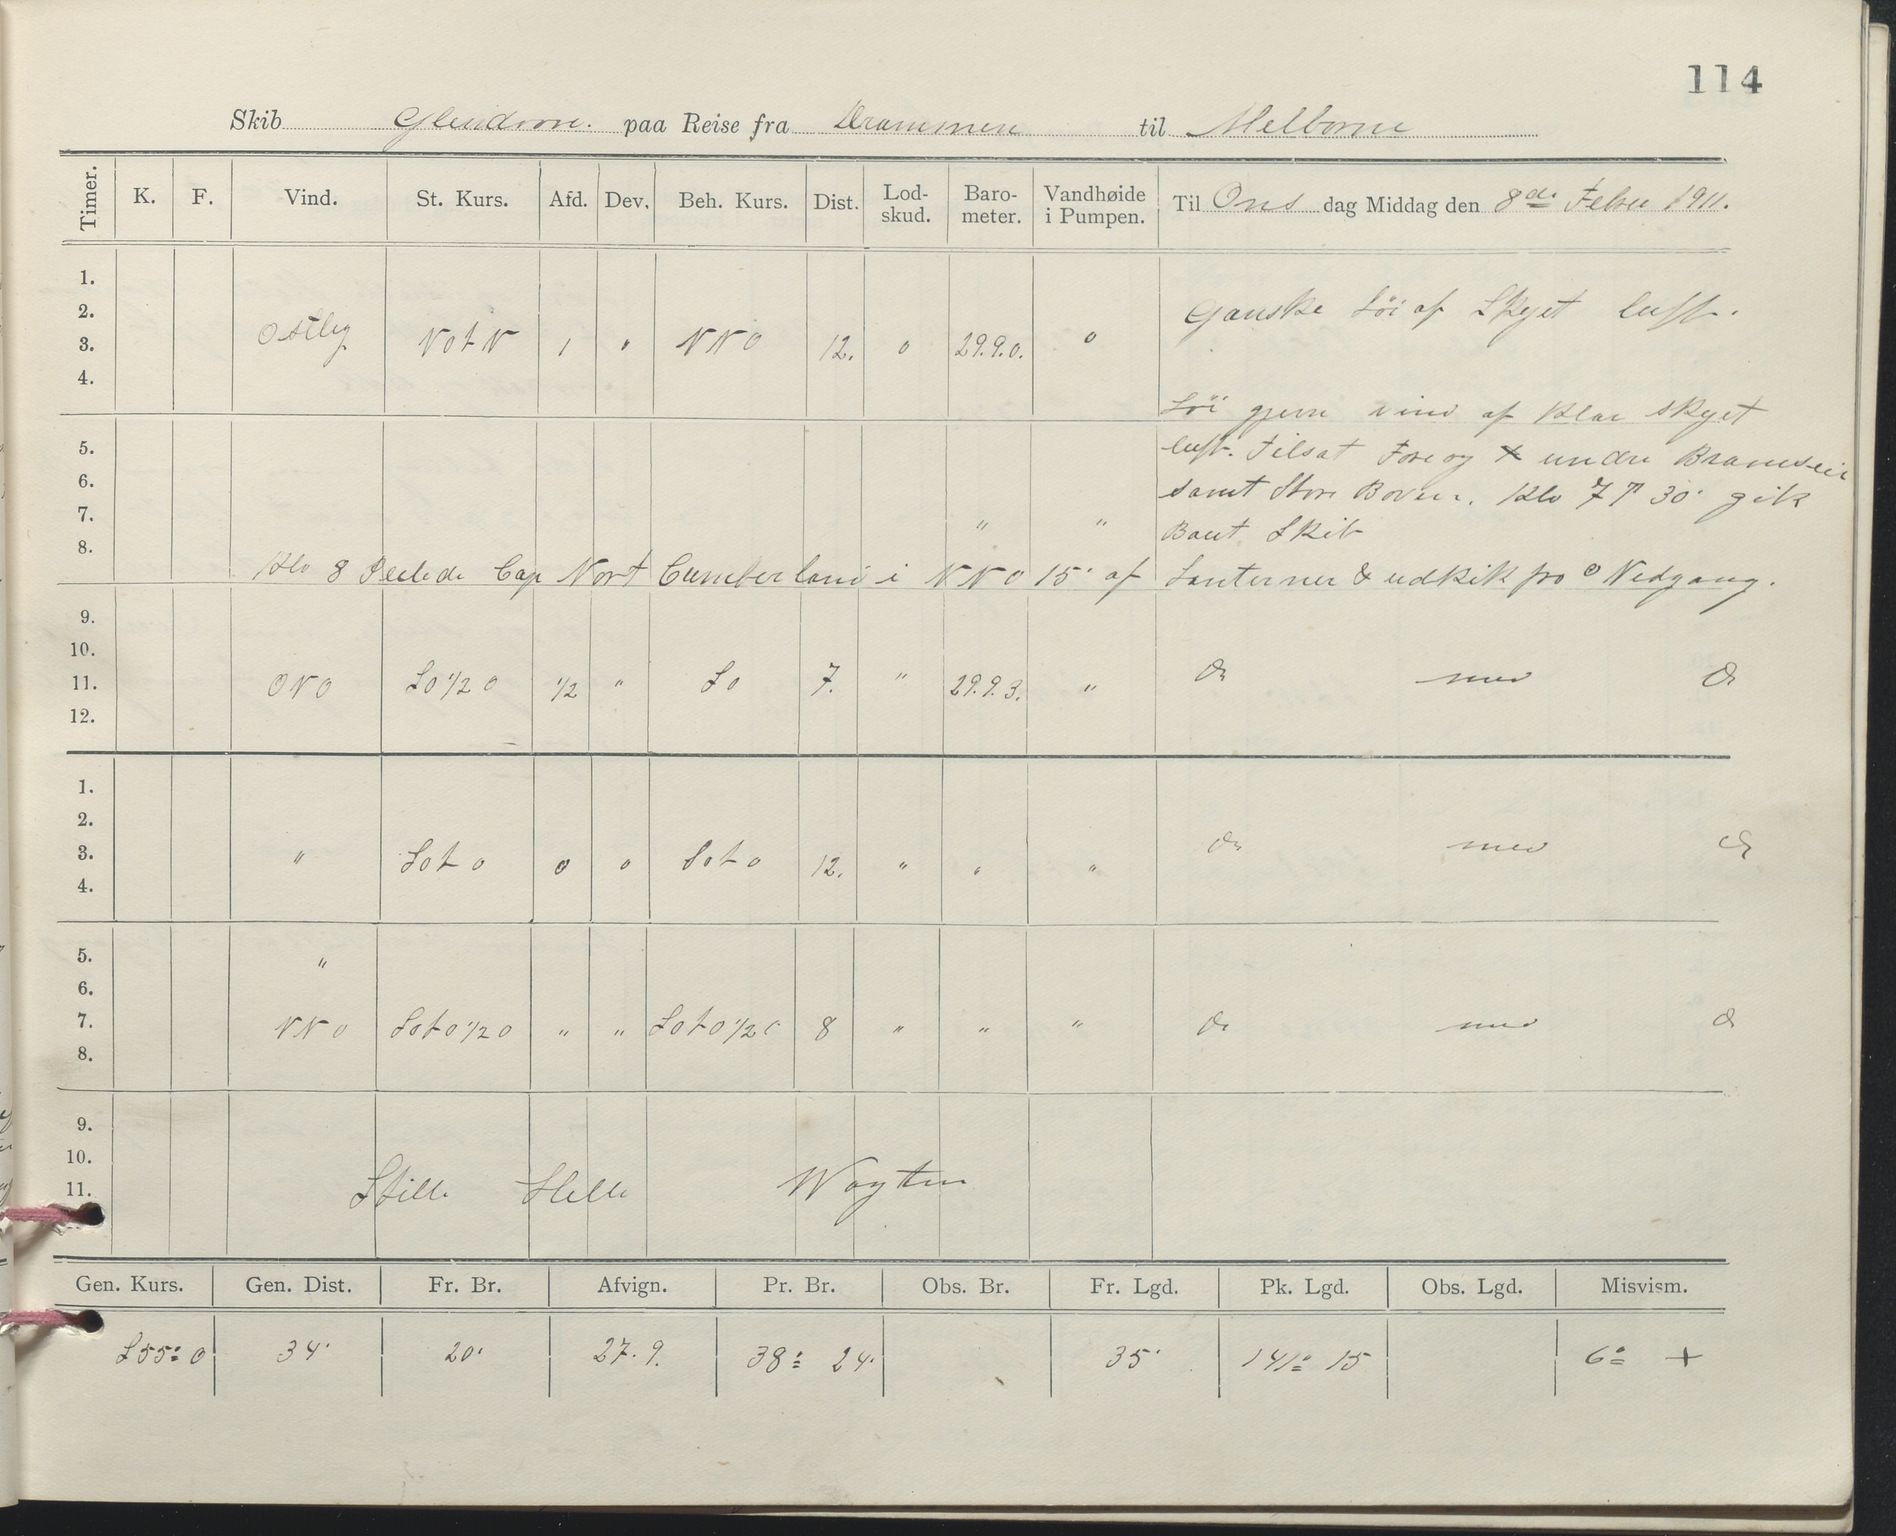 114
Skib Glendoon. paa Reise fra Drammen til Melborne
Timer. K. F. Vind. St. Kurs. Afd. Dev. Beh. Kurs. Dist. Lod-skud. Baro-meter. Vandhøide i Pumpen. Til Ons dag Middag den 8de Febr 1911.
1.
2. Ganske Löi af Skyet luft.
3. Ostlig NotN 1 " NNO 12. 0 29.9.0. 0
4.
Löi gjevn vind af Klar skyet
5. luft. Tilsat Fore og undre Bramseil
6. samt Store Boven. Klo 7 T 30' gik
7. " " Baut Skib
8.
Klo 8 Peilede Cap Nort Cumberland i NNO 15' af Lanterner & udkik fra ʘ Nedgang.
9.
10.
11. ONO SO 1/2 O 1/2 " SO 7. " 29.9.3. " Do med Do
12.
1.
2.
3. " Sot O 0 0 Sot O 12. " " " Do med Do
4.
5. "
6.
7. NNO Sot O 1/2 O " " Sot O 1/2 O 8 " " " Do med Do
8.
9.
10.
11. Stille Hele Vagten
Gen. Kurs. Gen. Dist. Fr. Br. Afvign. Pr. Br. Obs. Br. Fr. Lgd. Pk. Lgd. Obs. Lgd. Misvism.
S55° O 34' 20' 27.9. 38° 24' 35' 141° 15 6° +